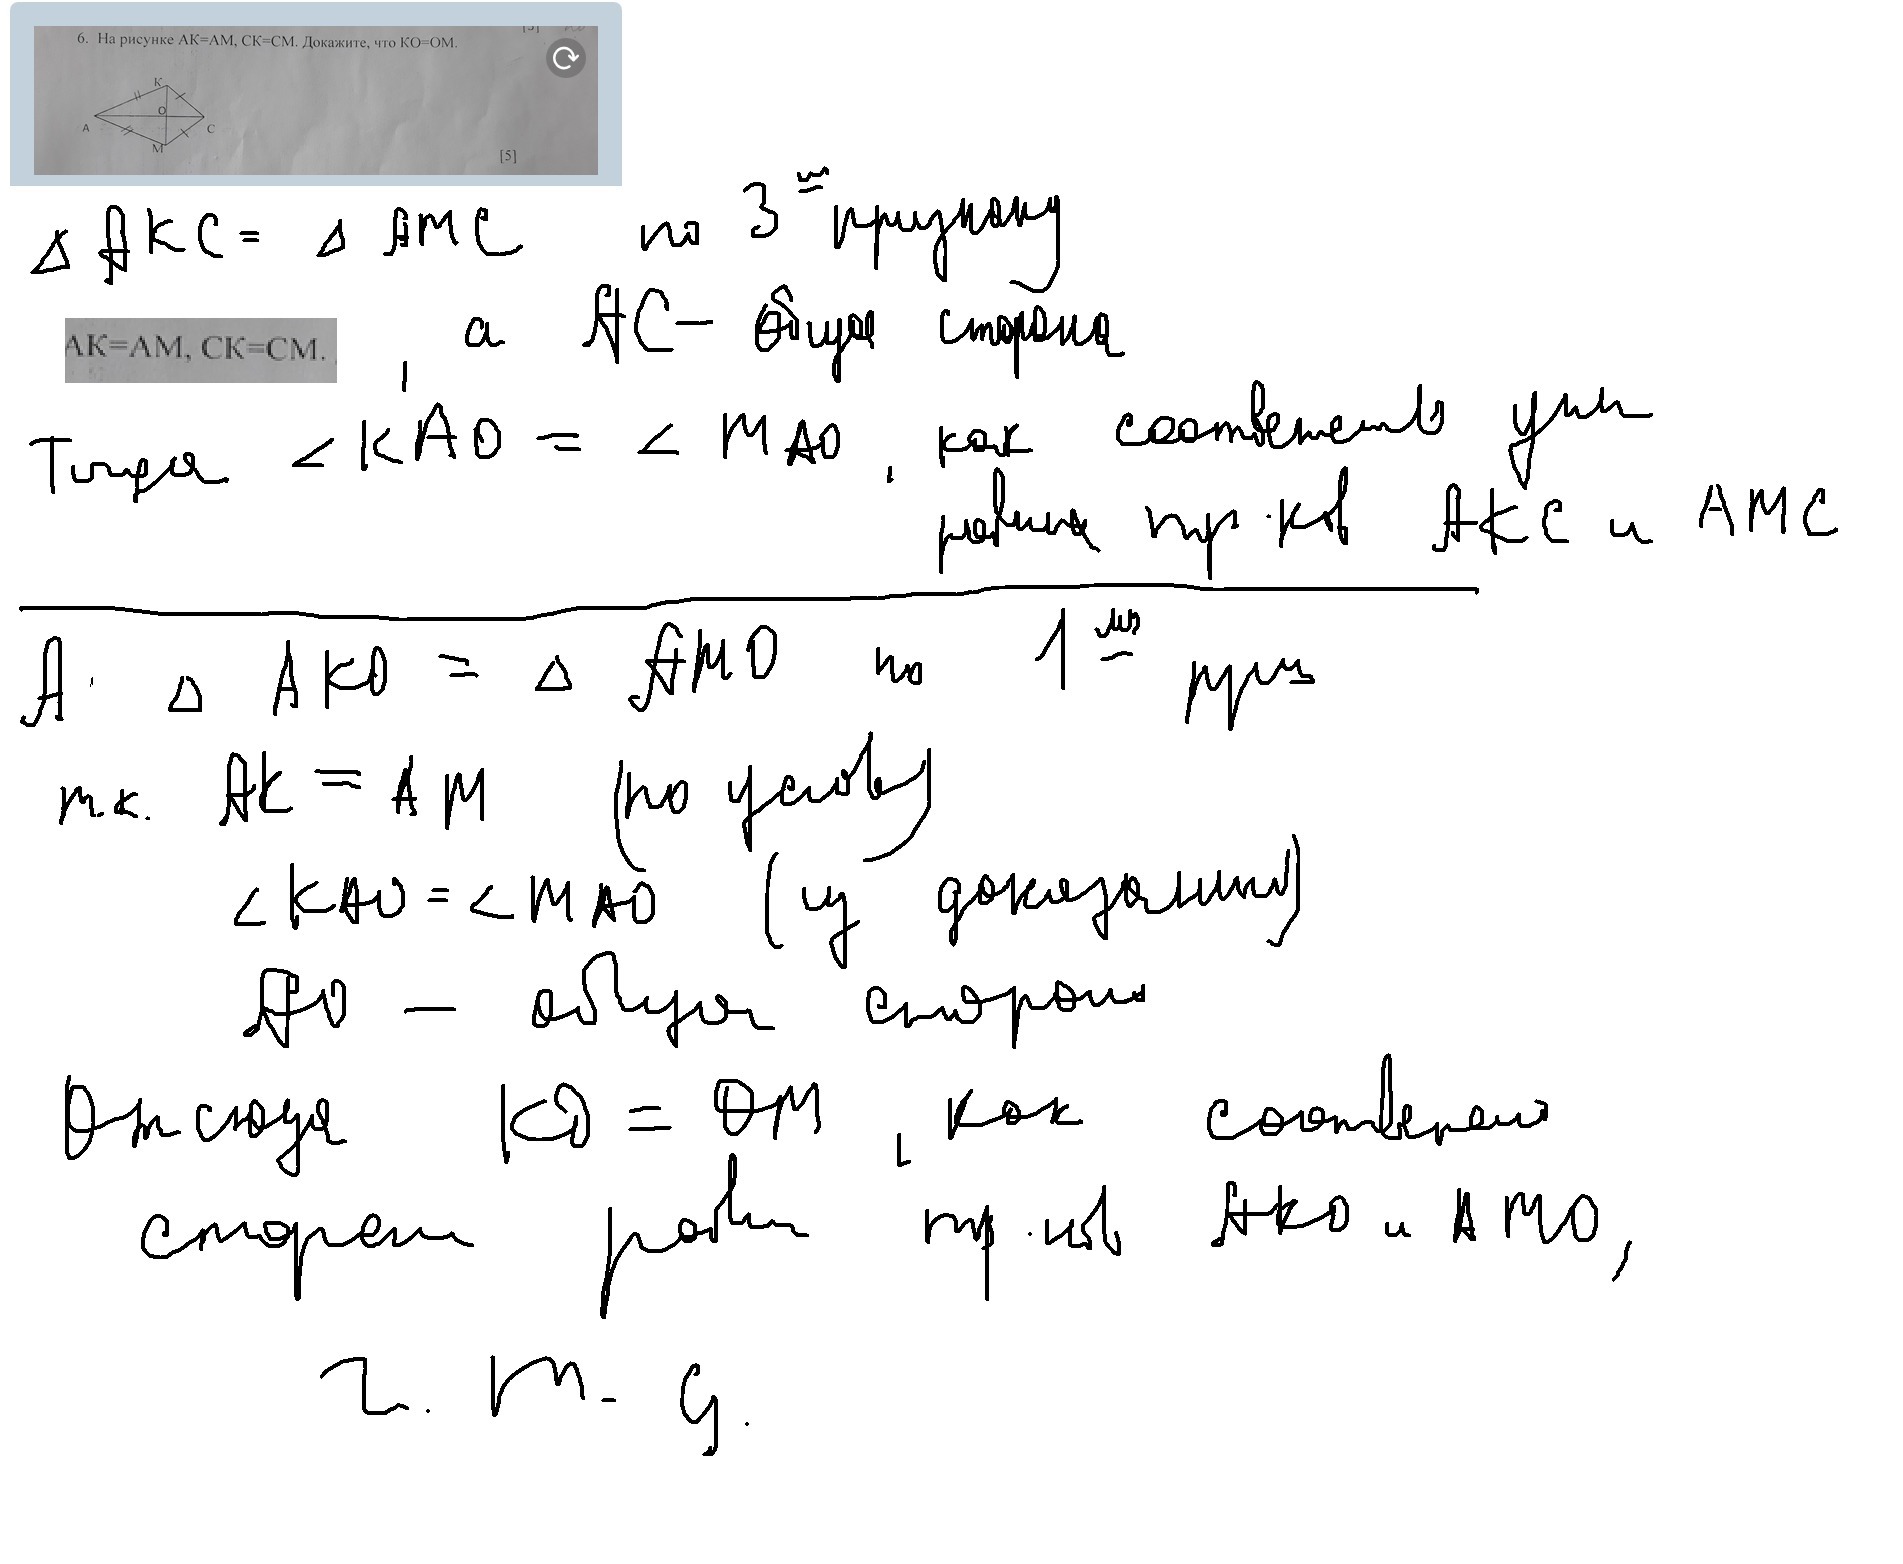 6. На рисунке AK=AM, CK=CM. Докажите, что KO=OM.
K
O
A
C
M
[5]
Δ AKC = Δ AMC по 3му признаку
AK=AM, CK=CM. , а AC – общая сторона
Тогда ∠KAO = ∠MAO, как соответств угли
равных тр-ков AKC и AMC
А Δ AKO = Δ AMO по 1му приз
т.к. AK = AM (по услов)
∠KAO = ∠MAO (из доказанного)
AO – общая сторона
Отсюда KO = OM, как соответств
сторон равн тр-ков AKO и AMO,
ч. т. д.